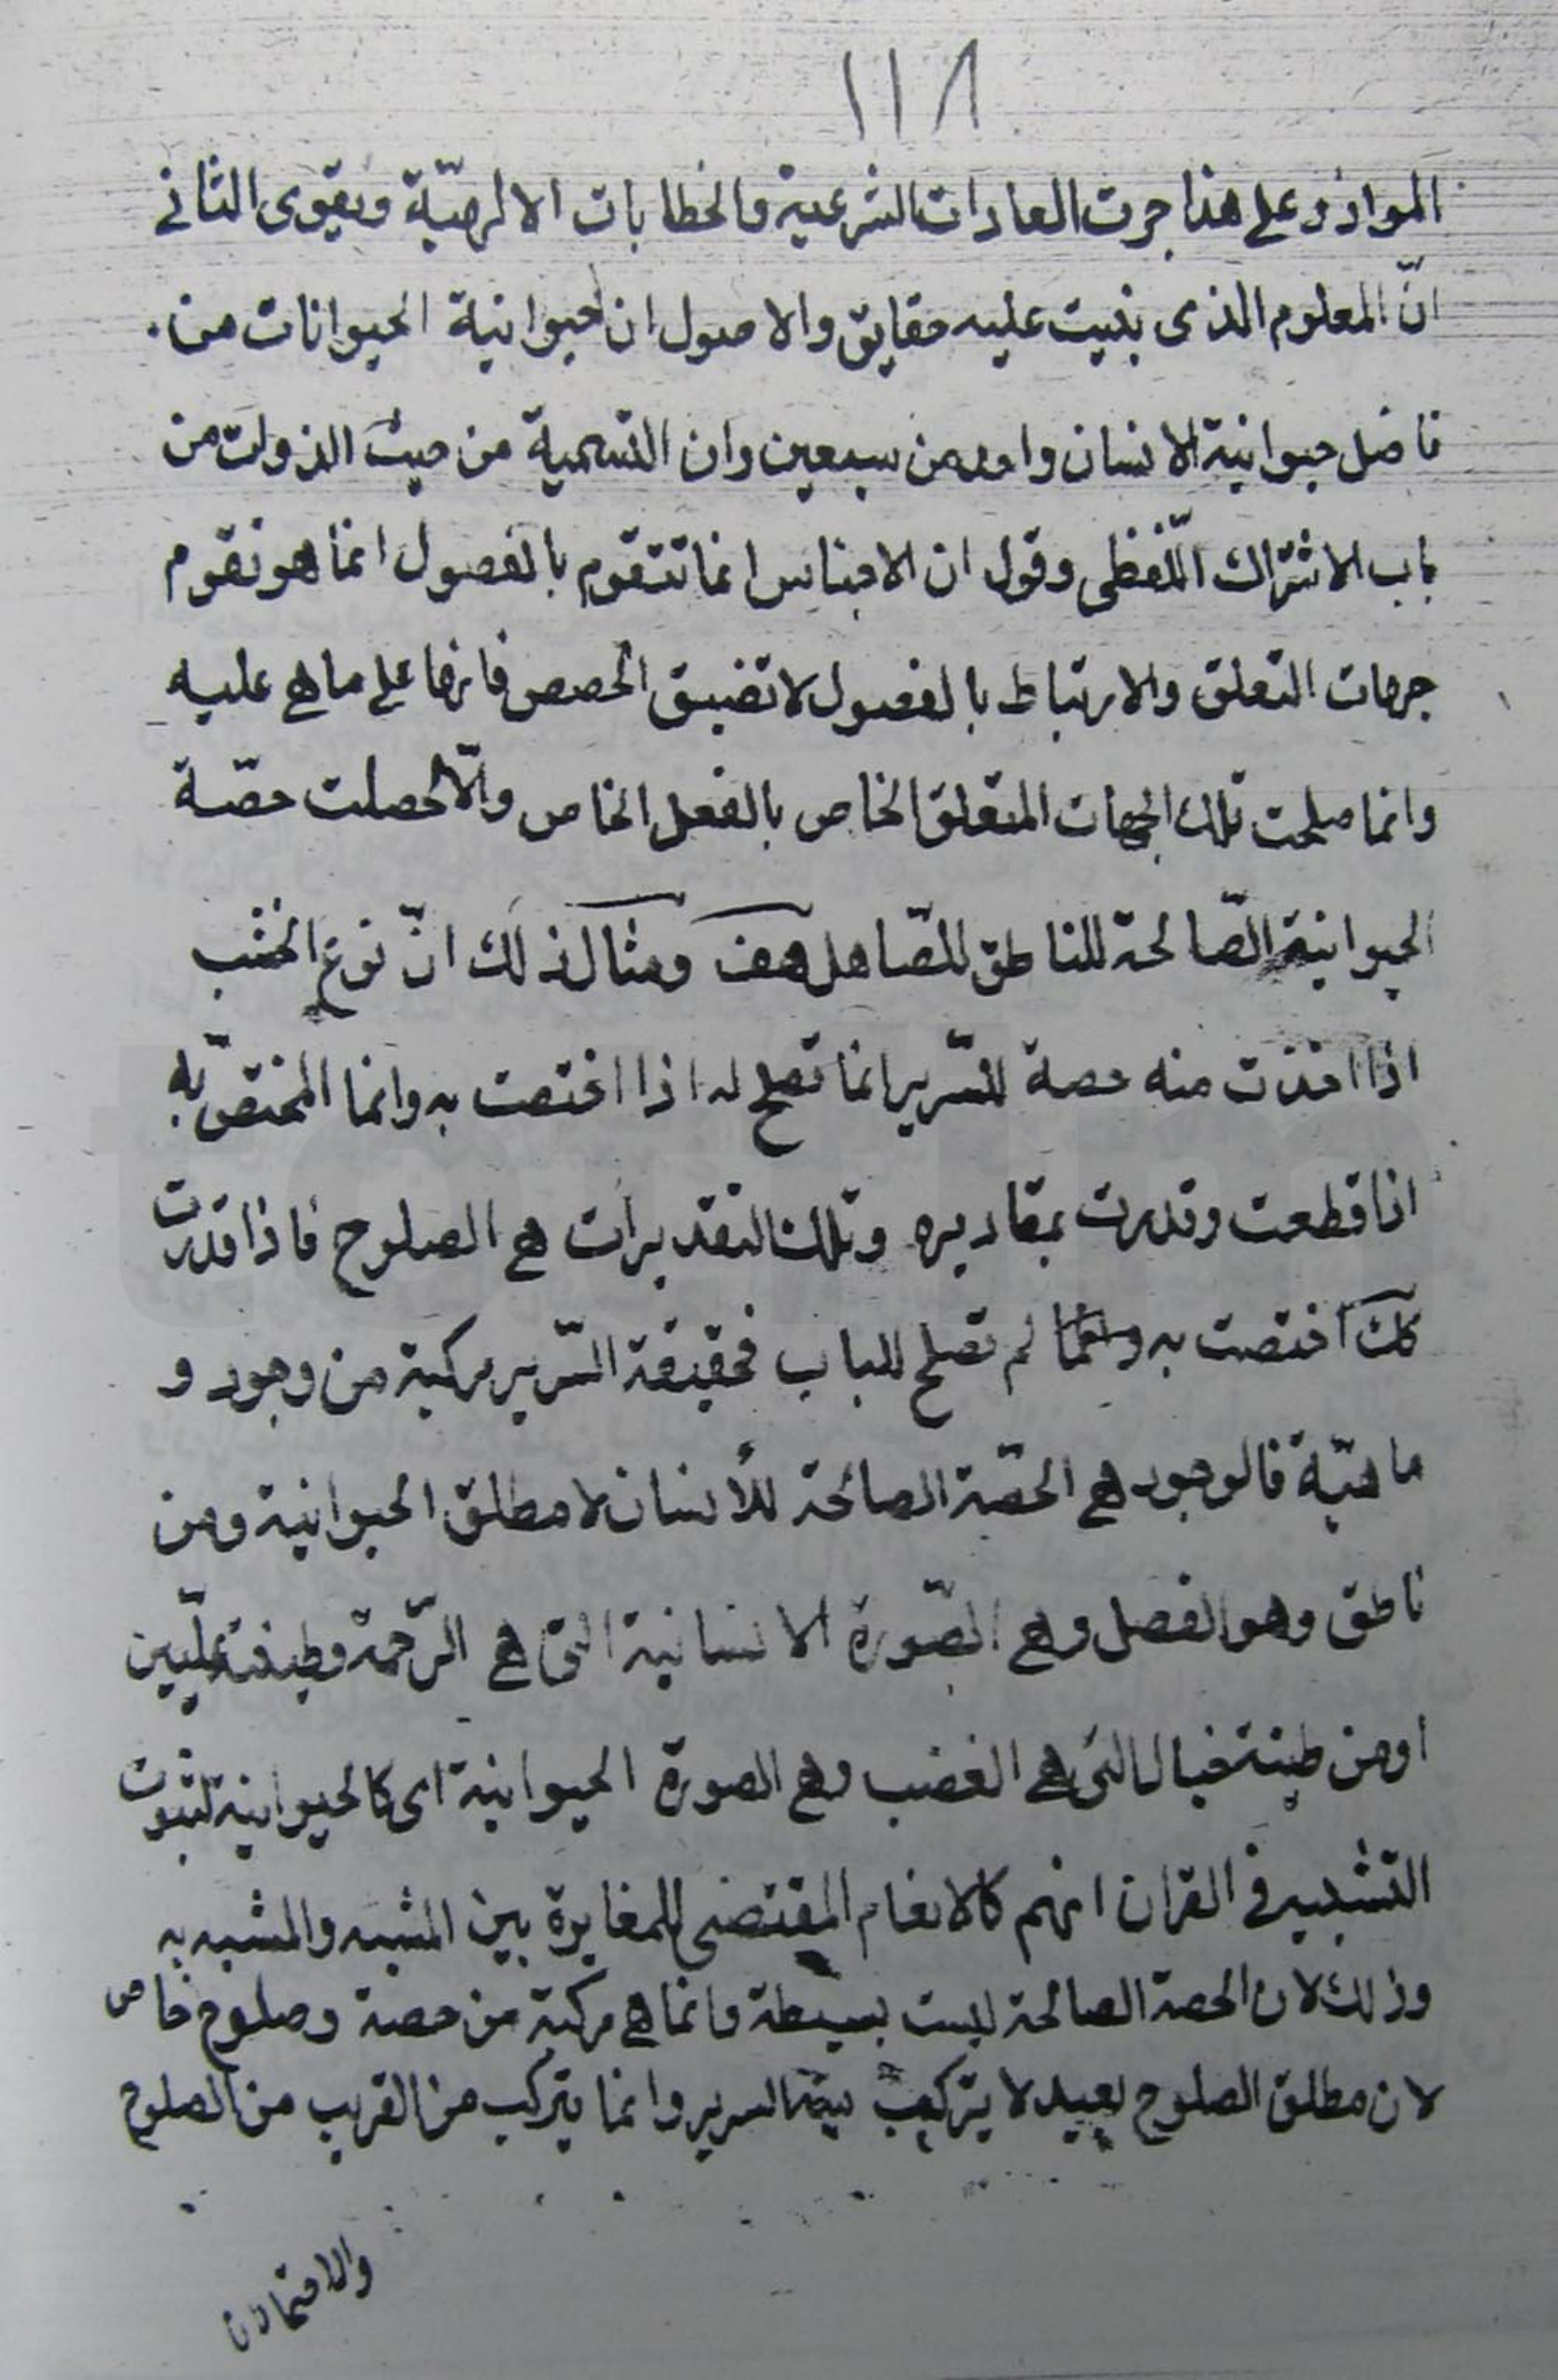 ١١٨
المواد وعلى هذا جرت العادات الشرعية والخطابات الالهيّة ويقوى الثانى
انّ المعلوم الذى بنيت عليه حقايق والاصول ان حيوانية الحيوانات من
فاضل حيوانية الانسان واحد من سبعين وان التسمية من حيث الذوات من
باب الاشتراك اللّفظى وقول ان الاجناس انما تتقوم بالفصول انما هو تقوم
جهات التعلق والارتباط بالفصول لا تضيق الحصص فانها على ما هى عليه
وانما صلحت تلك الجهات المتعلق الخاص بالفعل الخاص والّا لحصلت حصّة
الحيوانية الصّالحة للناطق للصّاهل هف ومثال ذلك انّ نوع الخشب
اذا اخذت منه حصة للسّرير انما تصلح له اذا اختصت به وانما المختصّ به
اذا قطعت وقدرت بمقاديره وتلك التقديرات هى الصلوح فاذا قدرت
كك اختصت به لم تصلح للباب فحقيقة السّرير مركبة من وجود و
ماهيّة فالوجود هى الحصّة الصالحة للأنسان لا مطلق الحيوانية ومن
ناطق وهو الفصل وهى الصّورة الانسانية التى هى الرّحمة وطينة علّيين
او من طينة خبال التى هى الغضب وهى الصورة الحيوانية اى كالحيوانية لثبوت
التشبيه فى القران انهم كالانعام المقتضى للمغايرة بين المشبه والمشبه به
وذلك لان الحصة الصالحة ليست بسيطة وانما هى مركبة من حصة وصلوح خاص
لان مطلق الصلوح بعيد لا يتركب السرير وانما يتركب من القريب من الصلوح